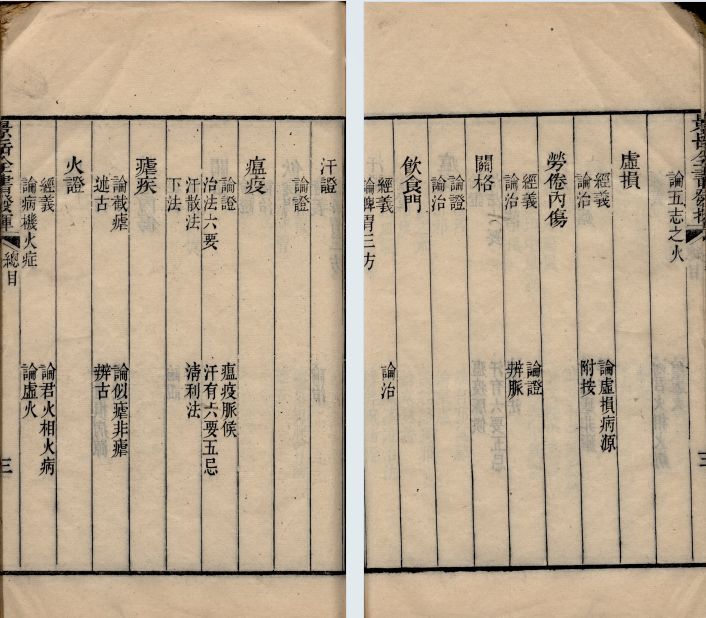 汗證
論證
瘟疫
論證　瘟疫脈候
治法六要　汗有六要五忌
汗散法　清利法
下法
瘧疾
論截瘧　論似瘧非瘧
述古　辨古
火證
經義　論君火相火病
論病機火症　論虛火
景岳全書發揮　總目　三
論五志之火
虛損
經義　論虛損病源
論治　附按
勞倦內傷
經義　論證
論治　辨脈
關格
論證
論治
飲食門
經義　論治
論脾胃三方